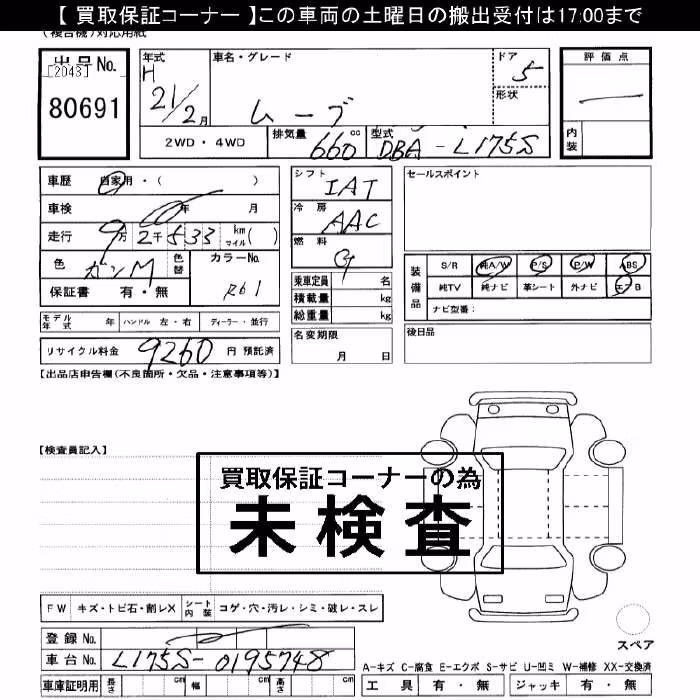 【 買取保証コーナー 】この車両の土曜日の搬出受付は17:00まで
(複合機)対応用紙
出品No.
[2043]
80691
年式
H
21/2月
車名・グレード
ムーブ
ドア
5
形状
評価点
内装
2WD・4WD
排気量 660 cc
型式 DBA-L175S
車歴 自家用・( )
車検 年 月
走行 9万2千533 km マイル( )
色 ガンM 色替
カラーNo. R61
保証書 有・無
シフト IAT
冷房 AAC
燃料 G
乗車定員 名
積載量 kg
総重量 kg
セールスポイント
装備品
S/R 純A/W P/S P/W ABS
純TV 純ナビ 革シート 外ナビ エアB
ナビ型番:
モデル年式 年 ハンドル 左・右 ディーラー・並行
リサイクル料金 9260 円 預託済
名変期限
月 日
後日品
【出品店申告欄(不良箇所・欠品・注意事項等)】
【検査員記入】
買取保証コーナーの為
未検査
FW キズ・トビ石・割レX シート内装 コゲ・穴・汚レ・シミ・破レ・スレ
登録No.
車台No. L175S-0195748
スペア
A-キズ C-腐食 E-エクボ S-サビ U-凹ミ W-補修 XX-交換済
車庫証明用 長さ cm 幅 cm 高さ cm
工具 有・無 ジャッキ 有・無